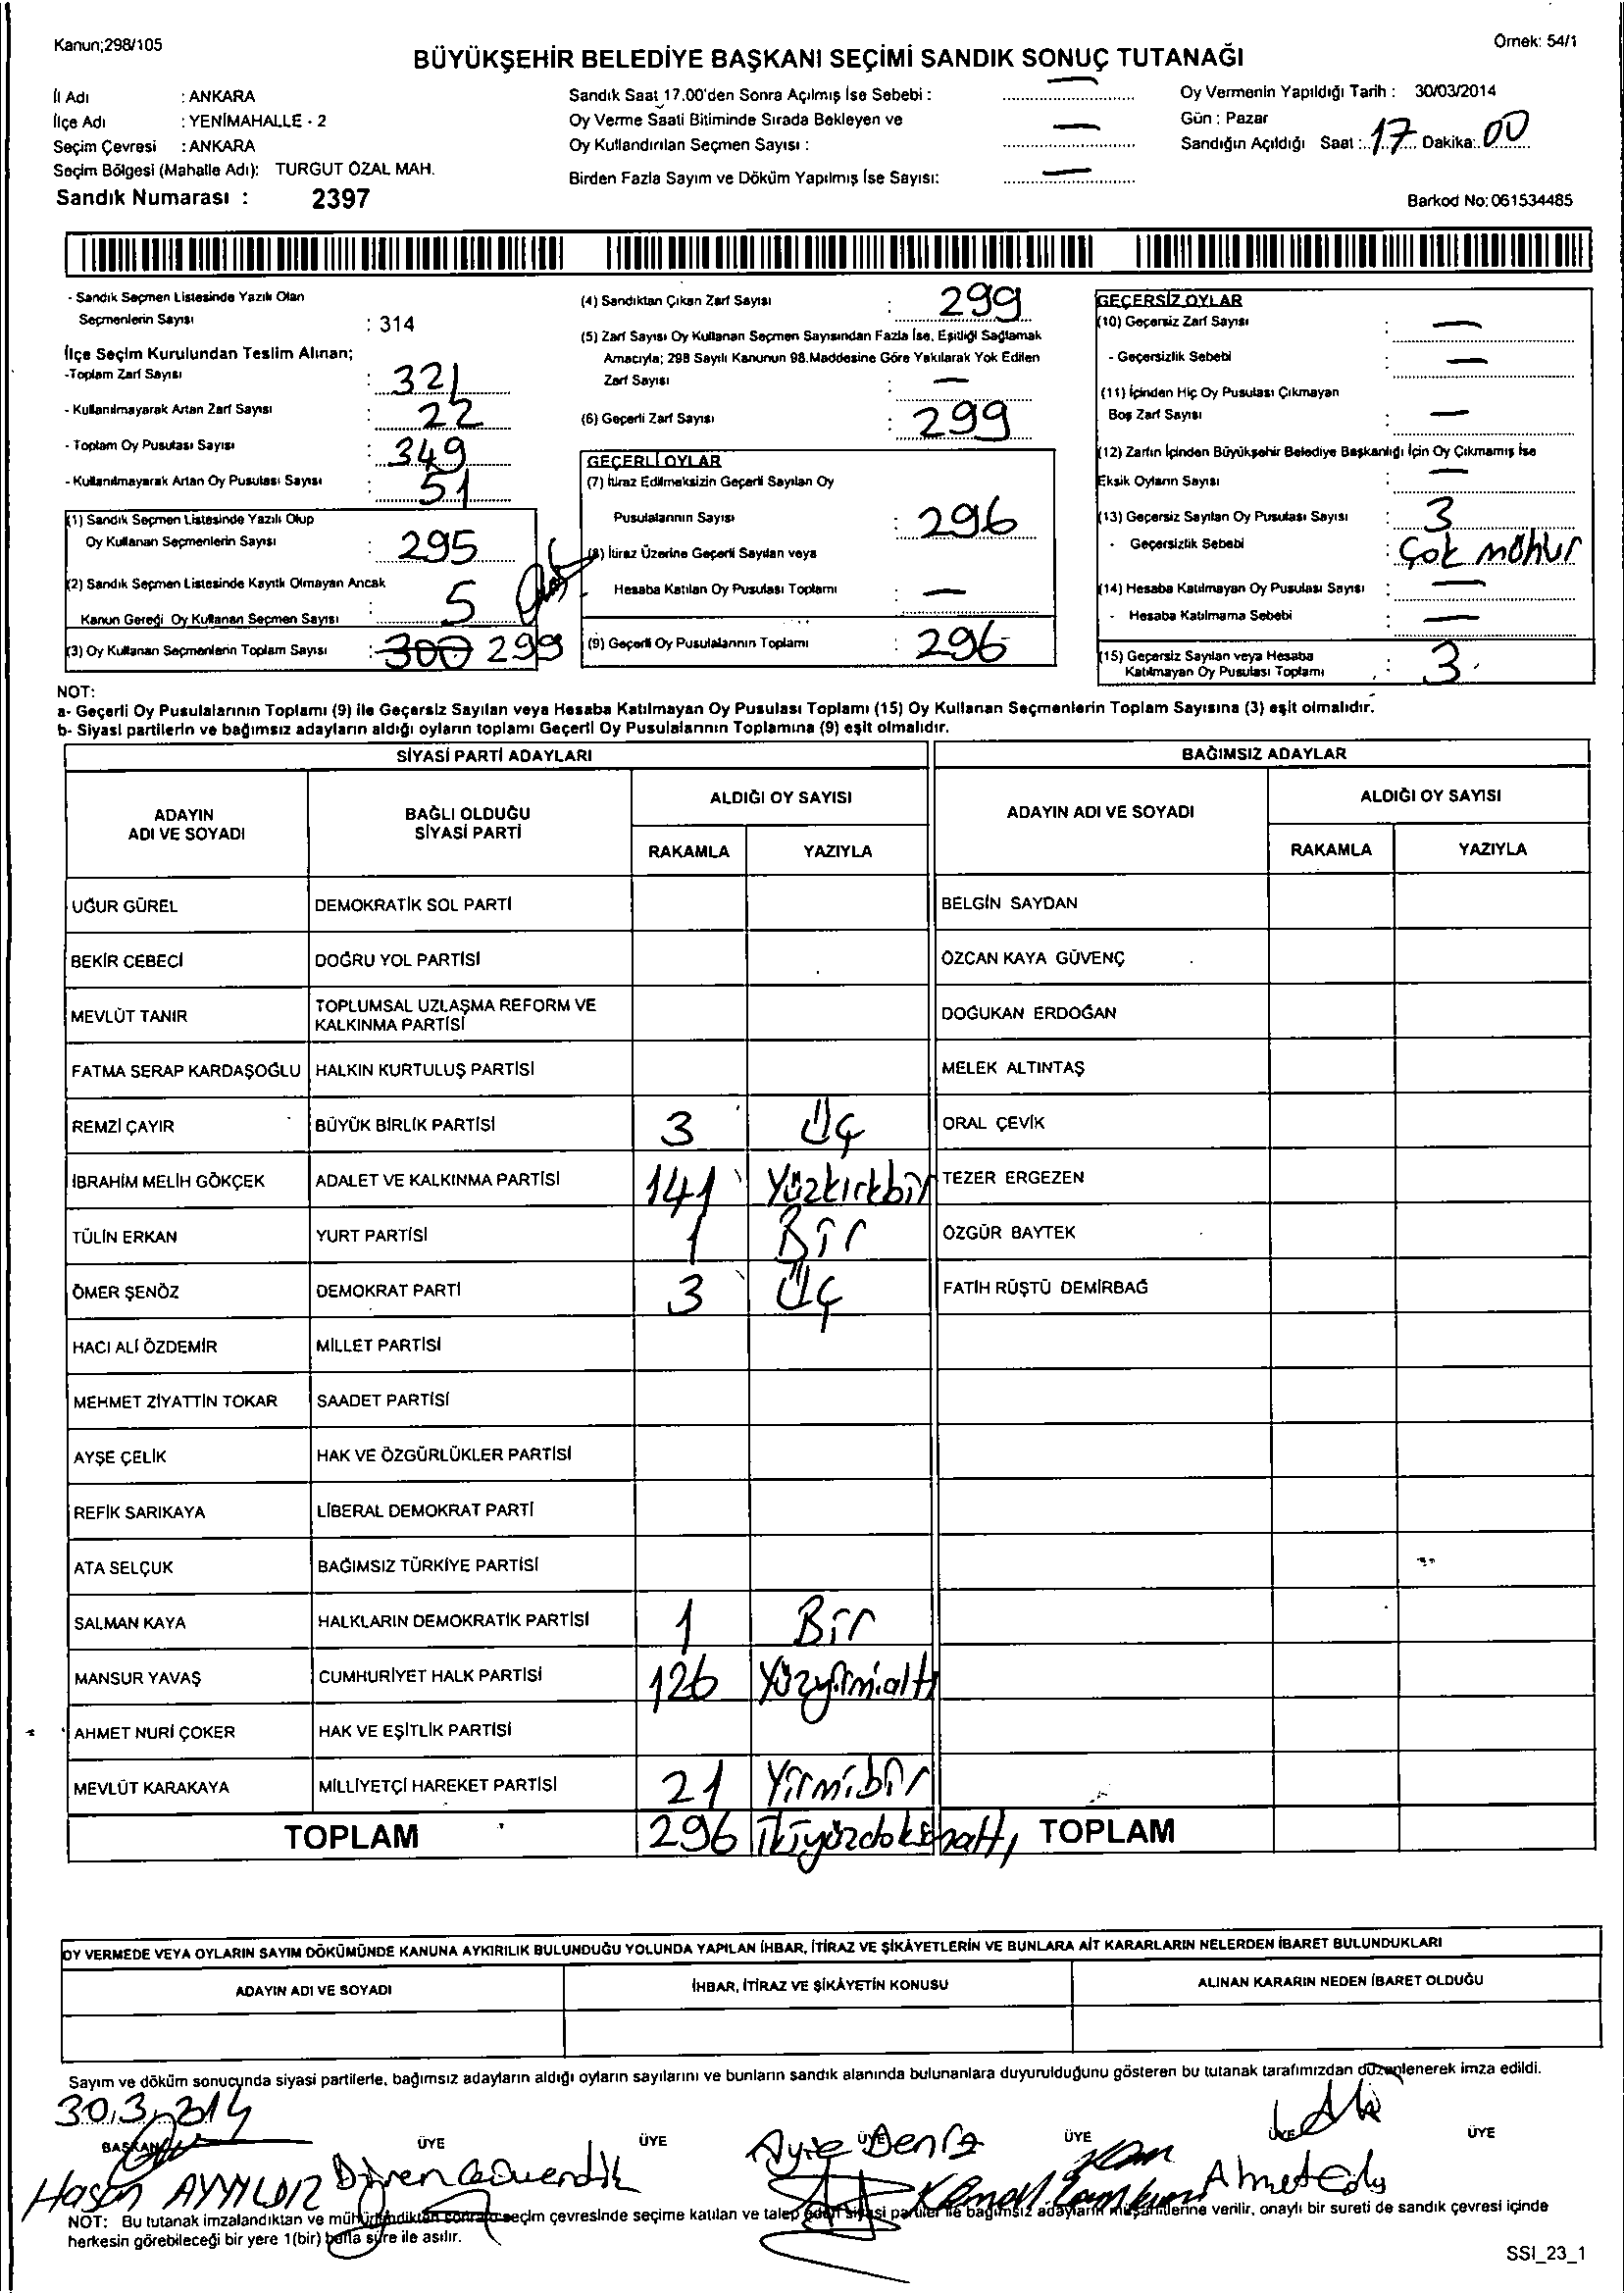 Kanun;298/105
Örnek: 54/1
BÜYÜKŞEHİR BELEDİYE BAŞKANI SEÇİMİ SANDIK SONUÇ TUTANAĞI
İl Adı : ANKARA
İlçe Adı : YENİMAHALLE - 2
Seçim Çevresi : ANKARA
Seçim Bölgesi (Mahalle Adı): TURGUT ÖZAL MAH.
Sandık Numarası : 2397
Sandık Saat 17.00'den Sonra Açılmış İse Sebebi : —
Oy Verme Saati Bitiminde Sırada Bekleyen ve
Oy Kullandırılan Seçmen Sayısı : —
Birden Fazla Sayım ve Döküm Yapılmış İse Sayısı: —
Oy Vermenin Yapıldığı Tarih : 30/03/2014
Gün : Pazar
Sandığın Açıldığı Saat : 17 Dakika: 00
Barkod No: 061534485
- Sandık Seçmen Listesinde Yazılı Olan
Seçmenlerin Sayısı : 314
İlçe Seçim Kurulundan Teslim Alınan;
-Toplam Zarf Sayısı : 321
- Kullanılmayarak Artan Zarf Sayısı : 22
- Toplam Oy Pusulası Sayısı : 349
- Kullanılmayarak Artan Oy Pusulası Sayısı : 51
(1) Sandık Seçmen Listesinde Yazılı Olup
Oy Kullanan Seçmenlerin Sayısı : 295
(2) Sandık Seçmen Listesinde Kayıtlı Olmayan Ancak
Kanun Gereği Oy Kullanan Seçmen Sayısı : 5
(3) Oy Kullanan Seçmenlerin Toplam Sayısı : 300 299
(4) Sandıktan Çıkan Zarf Sayısı : 299
(5) Zarf Sayısı Oy Kullanan Seçmen Sayısından Fazla İse, Eşitliği Sağlamak
Amacıyla; 298 Sayılı Kanunun 98.Maddesine Göre Yakılarak Yok Edilen
Zarf Sayısı : —
(6) Geçerli Zarf Sayısı : 299
GEÇERLİ OYLAR
(7) İtiraz Edilmeksizin Geçerli Sayılan Oy
Pusulalarının Sayısı : 296
(8) İtiraz Üzerine Geçerli Sayılan veya
Hesaba Katılan Oy Pusulası Toplamı : —
(9) Geçerli Oy Pusulalarının Toplamı : 296
GEÇERSİZ OYLAR
(10) Geçersiz Zarf Sayısı : —
- Geçersizlik Sebebi : —
(11) İçinden Hiç Oy Pusulası Çıkmayan
Boş Zarf Sayısı : —
(12) Zarfın İçinden Büyükşehir Belediye Başkanlığı İçin Oy Çıkmamış İse
Eksik Oyların Sayısı : —
(13) Geçersiz Sayılan Oy Pusulası Sayısı : 3
- Geçersizlik Sebebi : Çok mühür
(14) Hesaba Katılmayan Oy Pusulası Sayısı : —
- Hesaba Katılmama Sebebi : —
(15) Geçersiz Sayılan veya Hesaba
Katılmayan Oy Pusulası Toplamı : 3
NOT:
a- Geçerli Oy Pusulalarının Toplamı (9) ile Geçersiz Sayılan veya Hesaba Katılmayan Oy Pusulası Toplamı (15) Oy Kullanan Seçmenlerin Toplam Sayısına (3) eşit olmalıdır.
b- Siyasi partilerin ve bağımsız adayların aldığı oyların toplamı Geçerli Oy Pusulalarının Toplamına (9) eşit olmalıdır.
SİYASİ PARTİ ADAYLARI BAĞIMSIZ ADAYLAR
ADAYIN ADI VE SOYADI BAĞLI OLDUĞU SİYASİ PARTİ ALDIĞI OY SAYISI ADAYIN ADI VE SOYADI ALDIĞI OY SAYISI
RAKAMLA YAZIYLA RAKAMLA YAZIYLA
UĞUR GÜREL DEMOKRATİK SOL PARTİ BELGİN SAYDAN
BEKİR CEBECİ DOĞRU YOL PARTİSİ ÖZCAN KAYA GÜVENÇ
MEVLÜT TANIR TOPLUMSAL UZLAŞMA REFORM VE KALKINMA PARTİSİ DOĞUKAN ERDOĞAN
FATMA SERAP KARDAŞOĞLU HALKIN KURTULUŞ PARTİSİ MELEK ALTINTAŞ
REMZİ ÇAYIR BÜYÜK BİRLİK PARTİSİ 3 Üç ORAL ÇEVİK
İBRAHİM MELİH GÖKÇEK ADALET VE KALKINMA PARTİSİ 141 Yüzkırkbir TEZER ERGEZEN
TÜLİN ERKAN YURT PARTİSİ 1 Bir ÖZGÜR BAYTEK
ÖMER ŞENÖZ DEMOKRAT PARTİ 3 Üç FATİH RÜŞTÜ DEMİRBAĞ
HACI ALİ ÖZDEMİR MİLLET PARTİSİ
MEHMET ZİYATTİN TOKAR SAADET PARTİSİ
AYŞE ÇELİK HAK VE ÖZGÜRLÜKLER PARTİSİ
REFİK SARIKAYA LİBERAL DEMOKRAT PARTİ
ATA SELÇUK BAĞIMSIZ TÜRKİYE PARTİSİ
SALMAN KAYA HALKLARIN DEMOKRATİK PARTİSİ 1 Bir
MANSUR YAVAŞ CUMHURİYET HALK PARTİSİ 126 Yüzyirmialtı
AHMET NURİ ÇOKER HAK VE EŞİTLİK PARTİSİ
MEVLÜT KARAKAYA MİLLİYETÇİ HAREKET PARTİSİ 21 Yirmibir
TOPLAM 296 İkiyüzdoksanaltı TOPLAM
OY VERMEDE VEYA OYLARIN SAYIM DÖKÜMÜNDE KANUNA AYKIRILIK BULUNDUĞU YOLUNDA YAPILAN İHBAR, İTİRAZ VE ŞİKÂYETLERİN VE BUNLARA AİT KARARLARIN NELERDEN İBARET BULUNDUKLARI
ADAYIN ADI VE SOYADI İHBAR, İTİRAZ VE ŞİKÂYETİN KONUSU ALINAN KARARIN NEDEN İBARET OLDUĞU
Sayım ve döküm sonucunda siyasi partilerle, bağımsız adayların aldığı oyların sayılarını ve bunların sandık alanında bulunanlara duyurulduğunu gösteren bu tutanak tarafımızdan düzenlenerek imza edildi.
30.3.2014
BAŞKAN ÜYE ÜYE ÜYE ÜYE ÜYE ÜYE
Hasan AYYILDIZ Ayşe Deniz Kemal Ahmet
NOT: Bu tutanak imzalandıktan ve mühürlendikten sonra o seçim çevresinde seçime katılan ve talep eden siyasi partiler ile bağımsız adayların müşahitlerine verilir, onaylı bir sureti de sandık çevresi içinde
herkesin görebileceği bir yere 1(bir) hafta süre ile asılır.
SSI_23_1